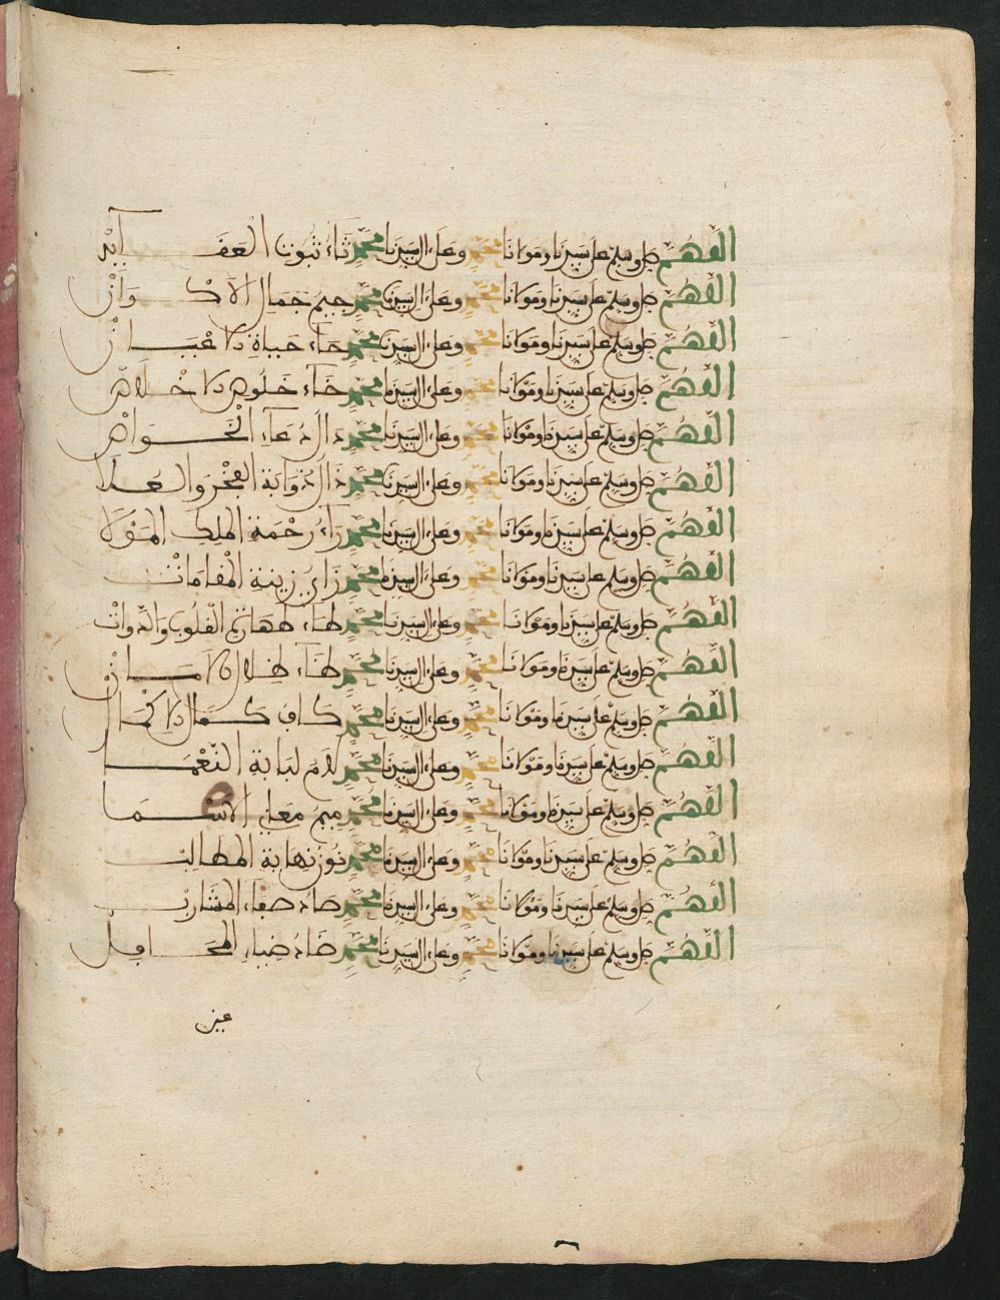 اللهم صل وسلم على سيدنا ومولانا محمد وعلى ءال سيدنا محمد ثاء ثبوت العقـــايد
اللهم صل وسلم على سيدنا ومولانا محمد وعلى ءال سيدنا محمد جيم جمال الاكـــوان
اللهم صل وسلم على سيدنا ومولانا محمد وعلى ءال سيدنا محمد حاء حياة الاعيـــان
اللهم صل وسلم على سيدنا ومولانا محمد وعلى ءال سيدنا محمد خاء خلوص الاخـــلاص
اللهم صل وسلم على سيدنا ومولانا محمد وعلى ءال سيدنا محمد دال دعاء الخـــواص
اللهم صل وسلم على سيدنا ومولانا محمد وعلى ءال سيدنا محمد ذال ذؤابة الفخر والعـــلا
اللهم صل وسلم على سيدنا ومولانا محمد وعلى ءال سيدنا محمد راء رحمة الملك المـــولا
اللهم صل وسلم على سيدنا ومولانا محمد وعلى ءال سيدنا محمد زاي زينة المقامات
اللهم صل وسلم على سيدنا ومولانا محمد وعلى ءال سيدنا محمد طاء طهارة القلوب والذوات
اللهم صل وسلم على سيدنا ومولانا محمد وعلى ءال سيدنا محمد ظاء ظلال الامـــان
اللهم صل وسلم على سيدنا ومولانا محمد وعلى ءال سيدنا محمد كاف كمال الاكمـــال
اللهم صل وسلم على سيدنا ومولانا محمد وعلى ءال سيدنا محمد لام لبابة النعمـــا
اللهم صل وسلم على سيدنا ومولانا محمد وعلى ءال سيدنا محمد ميم معاني الاسمـــا
اللهم صل وسلم على سيدنا ومولانا محمد وعلى ءال سيدنا محمد نون نهاية المطالب
اللهم صل وسلم على سيدنا ومولانا محمد وعلى ءال سيدنا محمد صاد صفاء المشارب
اللهم صل وسلم على سيدنا ومولانا محمد وعلى ءال سيدنا محمد ضاد ضياء المحـــافل
عين